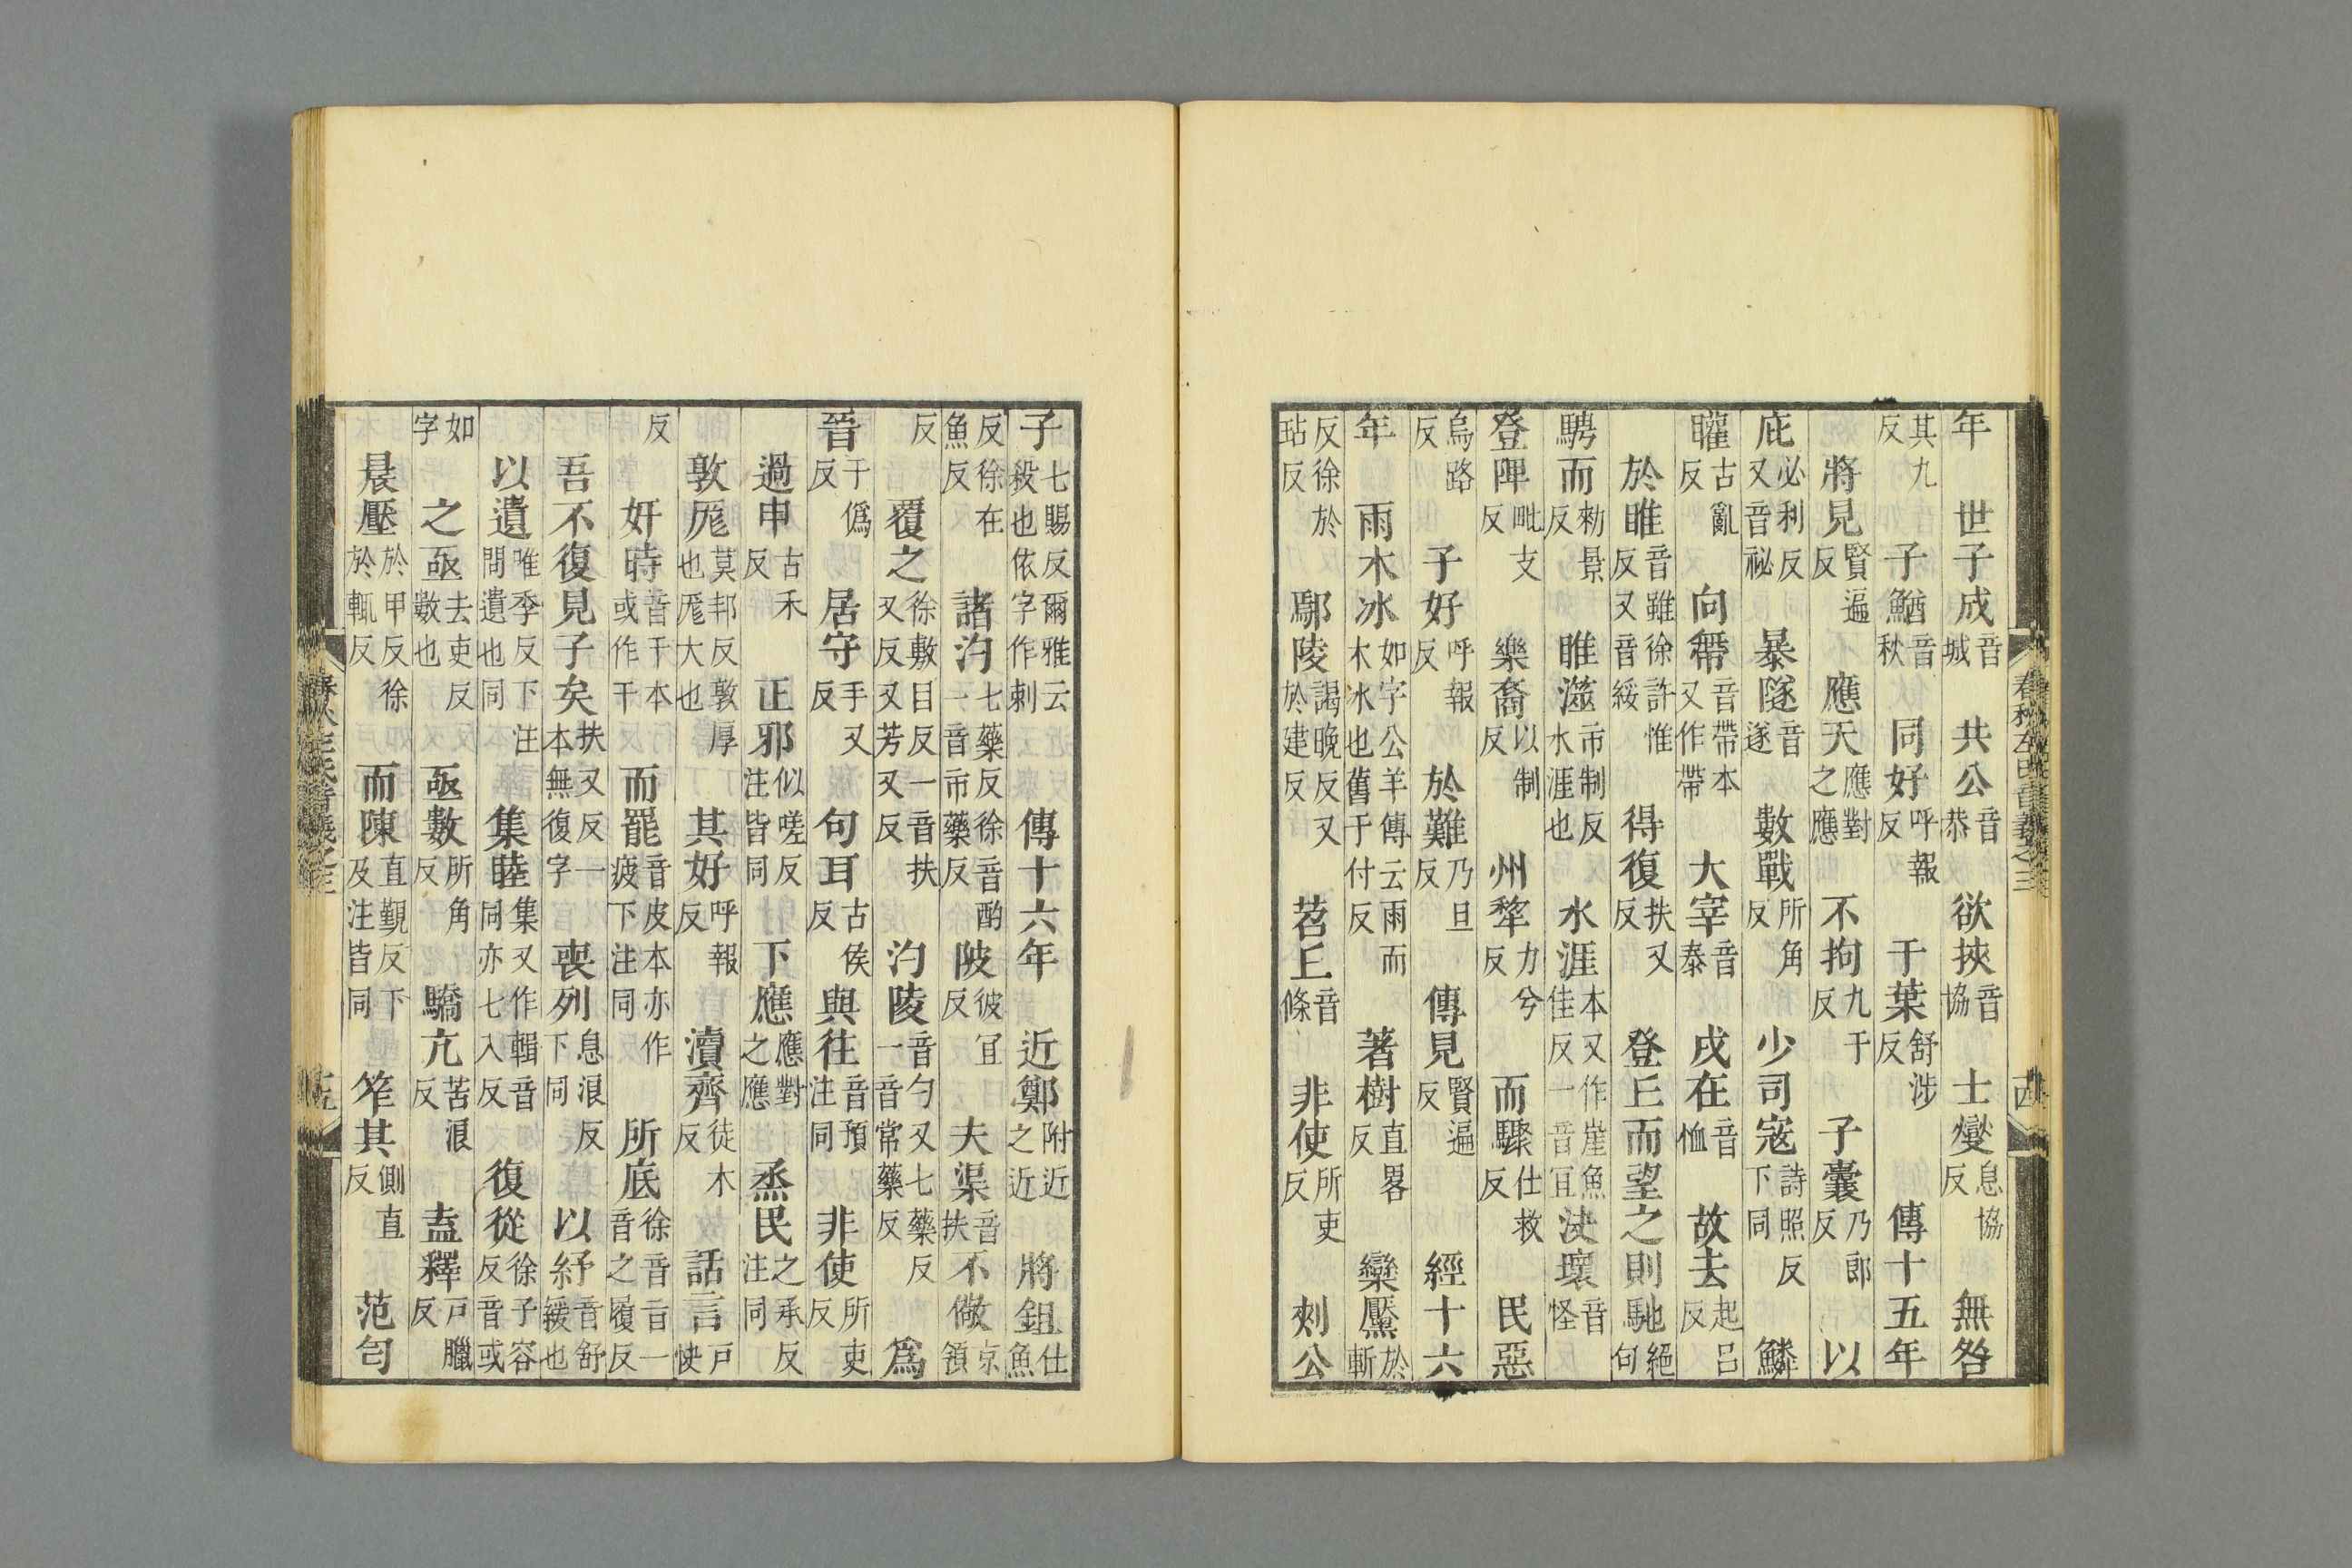 年　世子成音城　共公音恭　欲挾音協　士燮息協反　無咎
其九反　子鰌音秋　同好呼報反　于葉舒涉反　傳十五年
將見賢遍反　應天應對之應　不拘九于反　子囊乃郎反　以
庇必利反又音祕　暴隧音遂　數戰所角反　少司寇詩照反下同　鱗
矔古亂反　向帶音帶本又作帶　大宰音泰　戌在音恤　故去起呂反
於睢音雖徐許惟反又音綏　得復扶又反　登丘而望之則馳絕句
騁而勑景反　睢澨市制反水涯也　水涯本又作崖魚佳反一音宜　決壞音怪
登陴毗支反　樂裔以制反　州犂力兮反　而驟仕救反　民惡
烏路反　子好呼報反　於難乃旦反　傳見賢遍反　經十六
年　雨木冰如字公羊傳云雨而木冰也舊于付反　著樹直畧反　欒黶於斬
反徐於玷反　鄢陵謁晚反又於建反　苕丘音條　非使所吏反　刺公
子七賜反爾雅云殺也依字作刺　傳十六年　近鄭附近之近　將鉏仕魚
反徐在魚反　諸汋七藥反徐音酌一音市藥反　陂彼宜反　夫渠音扶　不儆京領
反　覆之徐敷目反一音扶又反又芳又反　汋陵音勺又七藥反一音常藥反　爲
晉于僞反　居守手又反　句耳古侯反　與往音預注同　非使所吏反
過申古禾反　正邪似嗟反注皆同　下應應對之應　烝民之承反注同
敦厖莫邦反敦厚也厖大也　其好呼報反　瀆齊徒木反　話言戶快
反　奸時音干本或作干　而罷音皮本亦作疲下注同　所底徐音旨一音之履反
吾不復見子矣扶又反一本無復字　喪列息浪反下同　以紓音舒緩也
以遺唯季反下注問遺也同　集睦集又作輯音同亦七入反　復從徐子容反音或
如字　之亟去吏反數也　亟數所角反　驕亢苦浪反　盍釋戶臘反
晨壓於甲反徐於輒反　而陳直覲反下及注皆同　笮其側直反　范匄
春秋左氏音義之三
春秋左氏音義之三